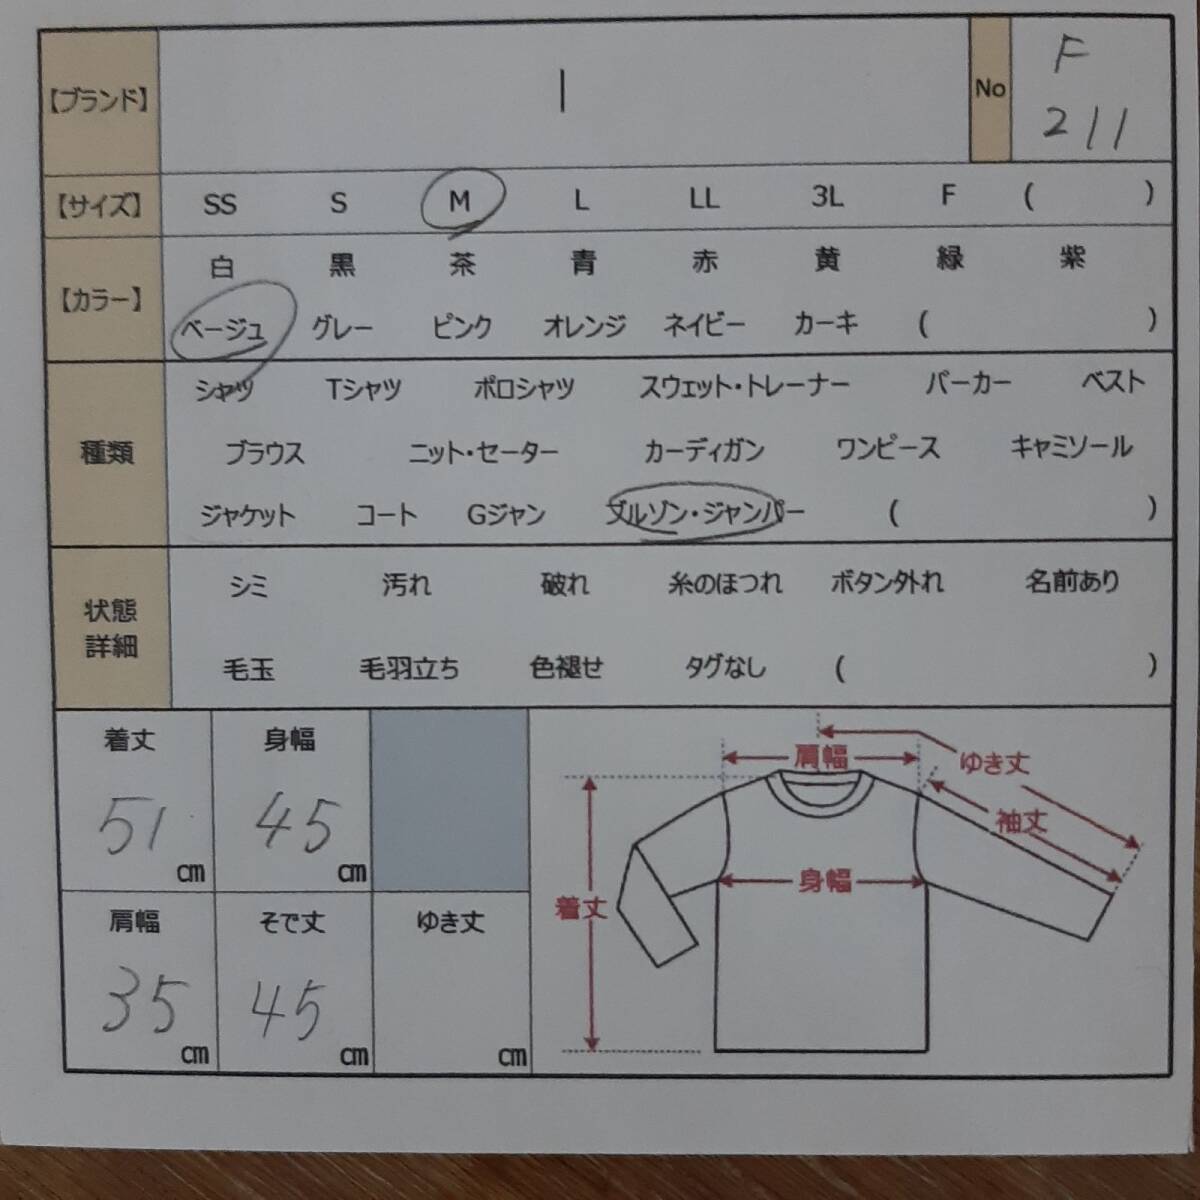 【ブランド】 No F 211
【サイズ】 SS S M L LL 3L F ( )
【カラー】 白 黒 茶 青 赤 黄 緑 紫
ベージュ グレー ピンク オレンジ ネイビー カーキ ( )
種類 シャツ Tシャツ ポロシャツ スウェット・トレーナー パーカー ベスト
ブラウス ニット・セーター カーディガン ワンピース キャミソール
ジャケット コート Gジャン ブルゾン・ジャンパー ( )
状態
詳細
シミ 汚れ 破れ 糸のほつれ ボタン外れ 名前あり
毛玉 毛羽立ち 色褪せ タグなし ( )
着丈 身幅
51 cm 45 cm
肩幅 そで丈 ゆき丈
35 cm 45 cm cm
肩幅 ゆき丈
袖丈
身幅
着丈